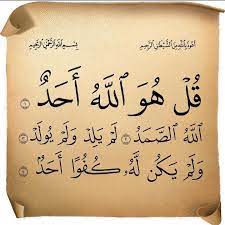 أعوذ بالله من الشيطان الرجيم بسم الله الرحمن الرحيم
قُلْ هُوَ ٱللَّهُ أَحَدٌ ١
ٱللَّهُ ٱلصَّمَدُ ٢ لَمْ يَلِدْ وَلَمْ يُولَدْ ٣
وَلَمْ يَكُن لَّهُۥ كُفُوًا أَحَدٌۢ ٤